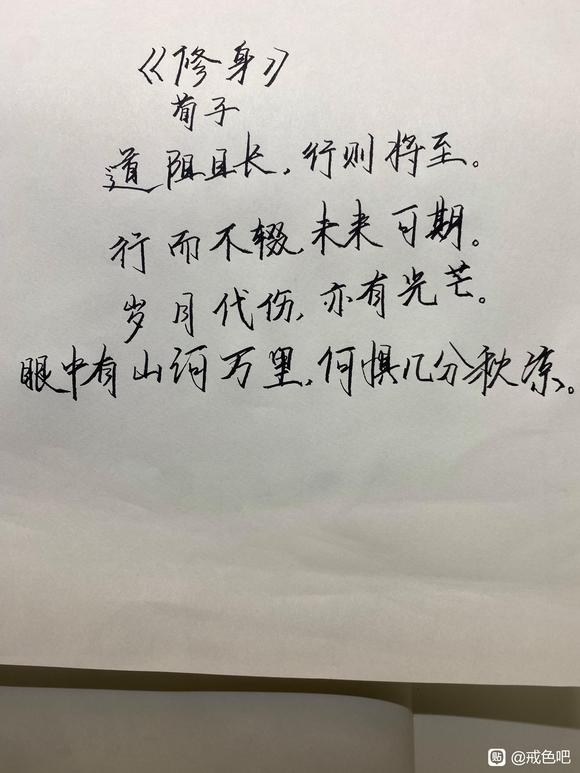 《修身》
荀子
道阻且长,行则将至。
行而不辍,未来可期。
岁月代伤,亦有光芒。
眼中有山河万里,何惧几分秋凉。
贴 @戒色吧